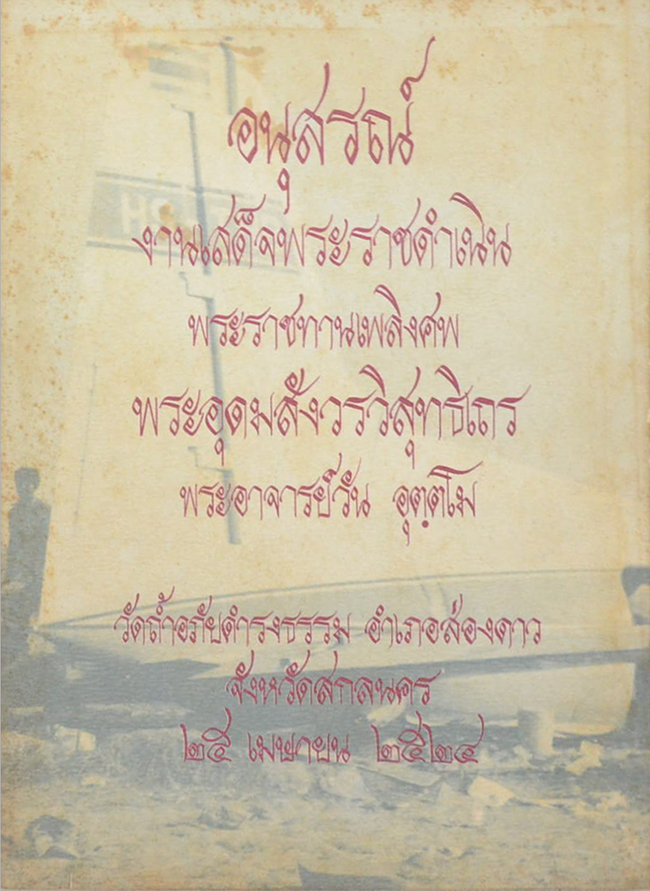 อนุสรณ์
งานเสด็จพระราชดำเนิน
พระราชทานเพลิงศพ
พระอุดมสังวรวิสุทธิเถร
พระอาจารย์วัน อุตฺตโม
วัดถ้ำอภัยดำรงธรรม อำเภอส่องดาว
จังหวัดสกลนคร
๒๕ เมษายน ๒๕๒๔